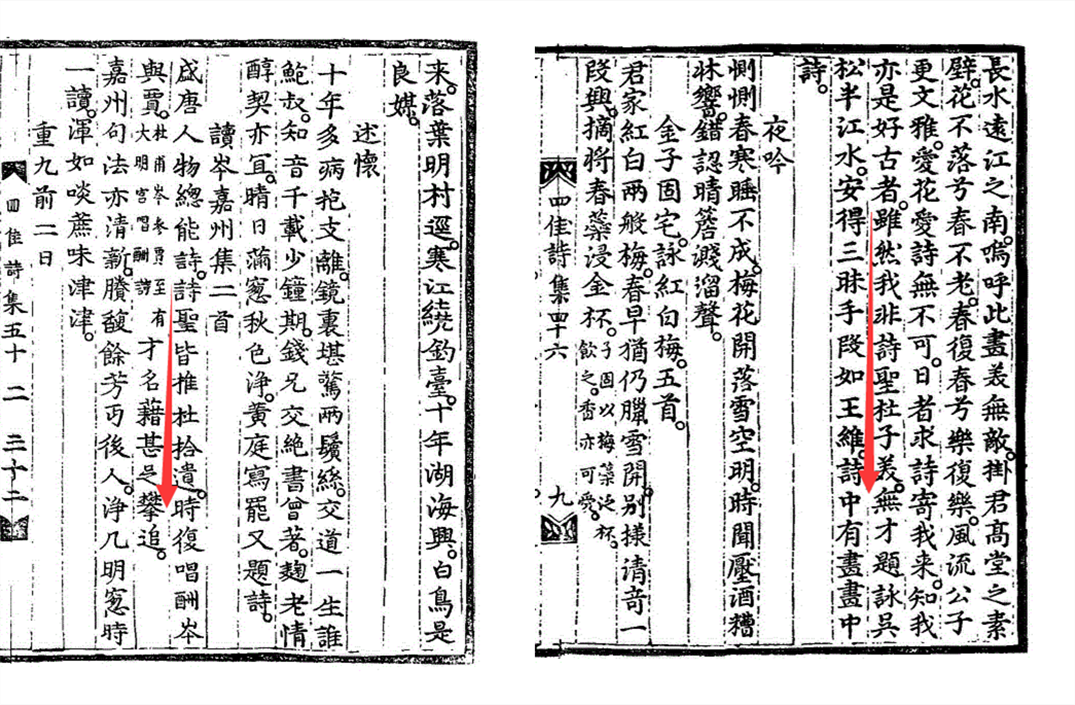 長水遠江之南。嗚呼此畫義無敵。掛君高堂之素
壁。花不落兮春不老。春復春兮樂復樂。風流公子
更文雅。愛花愛詩無不可。日者求詩寄我来。知我
亦是好古者。雖然我非詩聖杜子美。無才題詠吳
松半江水。安得三昧手段如王維。詩中有畫畫中
詩。
夜吟
惻惻春寒睡不成。梅花開落雪空明。時聞壓酒糟
牀響。錯認晴簷濺溜聲。
金子固宅。詠紅白梅。五首。
君家紅白兩般梅。春早猶仍臘雪開。別樣清奇一
段興。摘將春蘂浸金杯。子固以梅蘂泛杯。飲之。香亦可愛。
四佳詩集四十六 九
来。落葉明村逕。寒江繞釣臺。十年湖海興。白鳥是
良媒。
述懷
十年多病抱支離。鏡裏堪驚兩鬢絲。交道一生誰
鮑叔。知音千載少鐘期。錢兄交絶書曾著。麴老情
醇契亦宜。晴日滿窓秋色淨。黄庭寫罷又題詩。
讀岑嘉州集二首
盛唐人物總能詩。詩聖皆推杜拾遺。時復唱酬岑
與賈。杜甫岑参賈至有大明宮唱酬詩才名藉甚足攀追。
嘉州句法亦清新。賸馥餘芳丐後人。淨几明窓時
一讀。渾如啖蔗味津津。
重九前二日
四佳詩集五十二 三十二